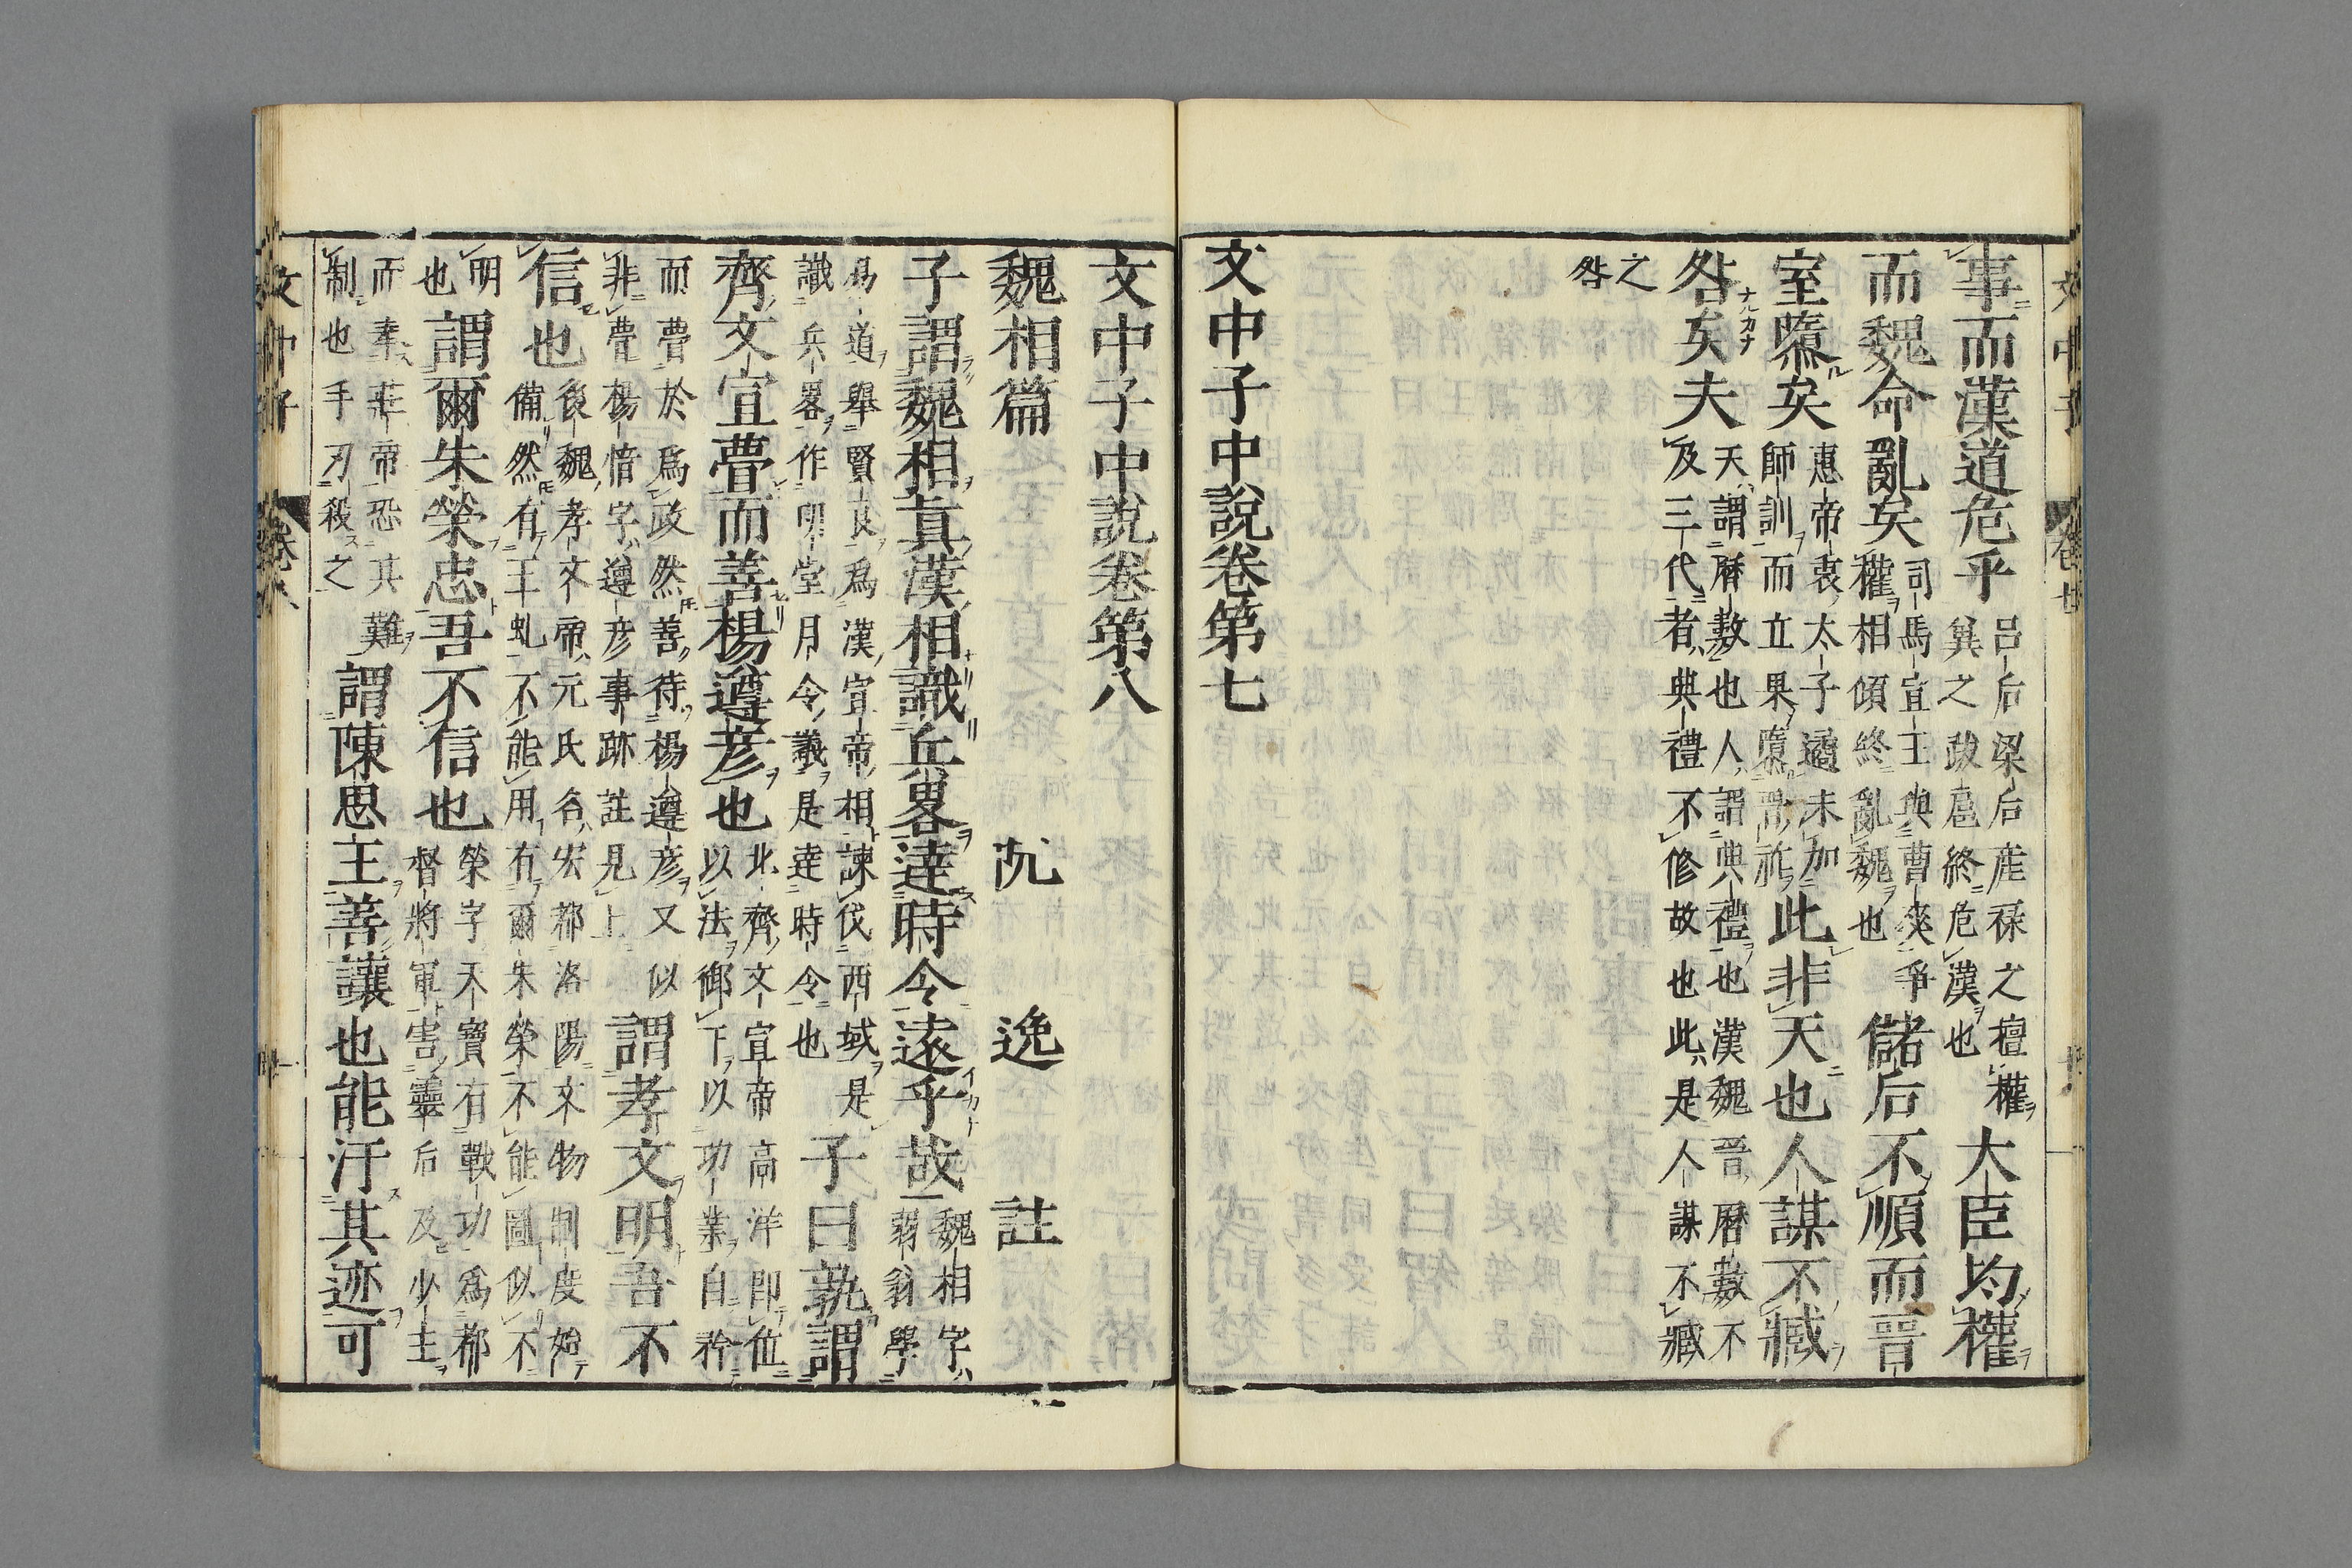 事而漢道危乎呂后梁后産祿之擅權冀之政扈終危漢也大臣均權
而魏命亂矣司馬宣王與曹爽爭權相傾終亂魏也儲后不順而晉
室隳矣惠帝衷太子遹未加師訓而立果隳晉祚此非天也人謀不臧
咎矣夫天謂曆數也人謂典禮也漢魏晉曆數不及三代者典禮不修故也此是人謀不臧
之咎
文中子中說卷第七
文中子中說卷第八
魏相篇 阮逸註
子謂魏相真漢相識兵畧達時令遠乎哉魏相字弱翁學
爲道舉賢良爲漢宣帝相諫伐西域是識兵畧作明堂月令議是達時令也子曰孰謂
齊文宣瞢而善楊遵彥也北齊文宣帝高洋即位以法御下以功業自矜
而瞢於爲政然善待楊遵彥又似非瞢楊愔字遵彥事跡註見上謂孝文明吾不
信也後魏孝文帝元氏名宏都洛陽文物制度始備然有王虬不能用有爾朱榮不能圖似不
明也謂爾朱榮忠吾不信也榮字天寶有戰功爲都督將軍害靈后及少主
而奉莊帝恐其難制也手刃殺之謂陳思王善讓也能汙其迹可